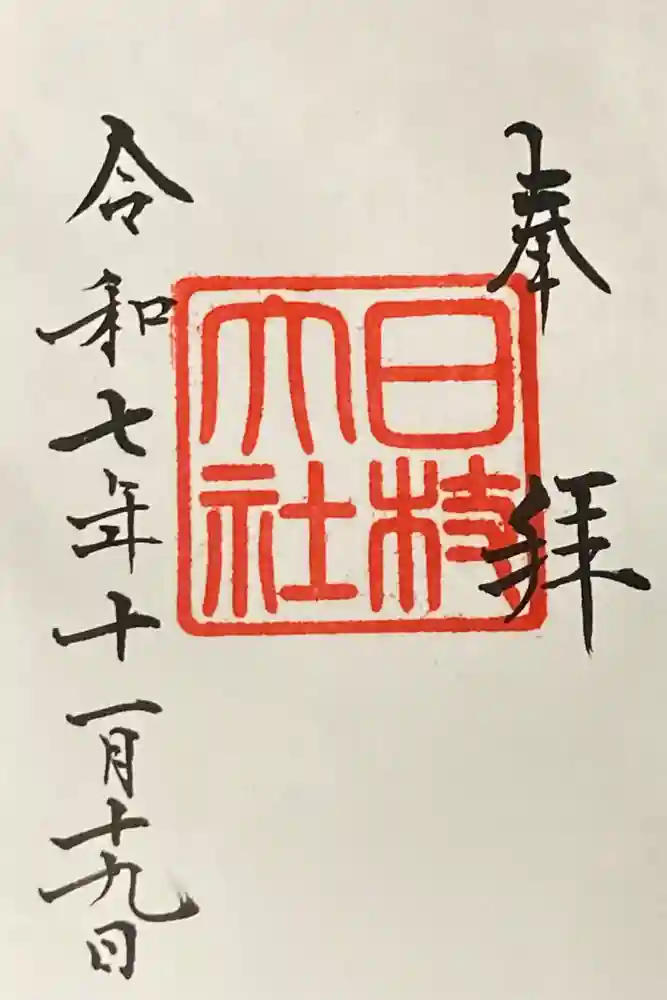 奉拝
日枝
大社
令和七年十一月十九日